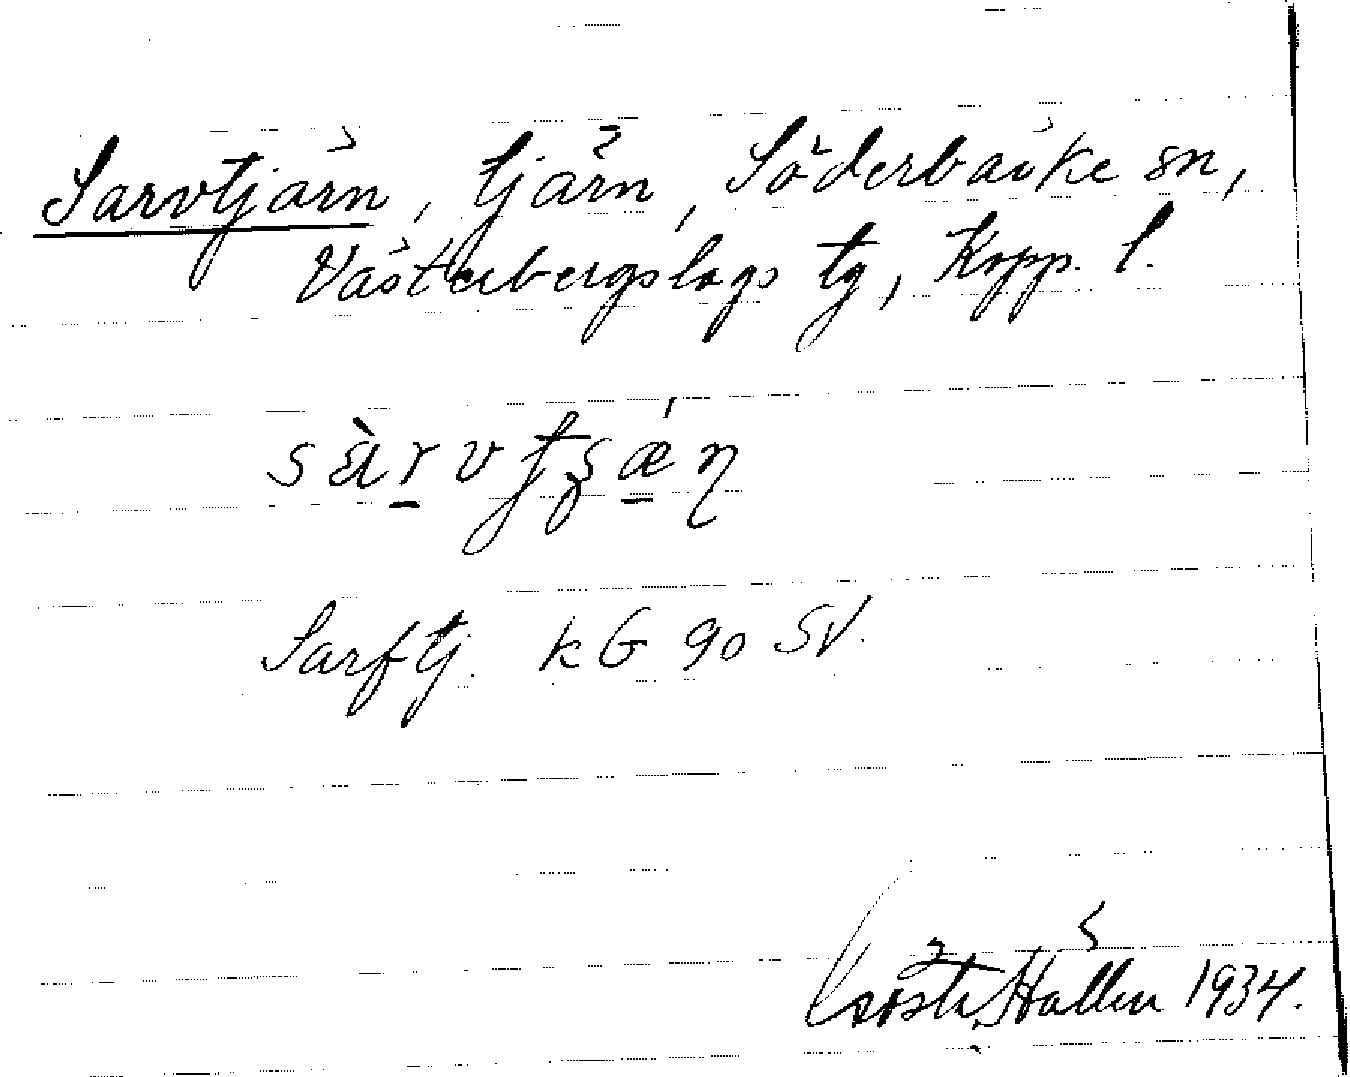 Sarvtjärn, tjärn, Söderbärke sn,
Västerbergslags tg, Kopp. l.
Sarftj. kG 90 SV.
Gösta Hallén 1934.